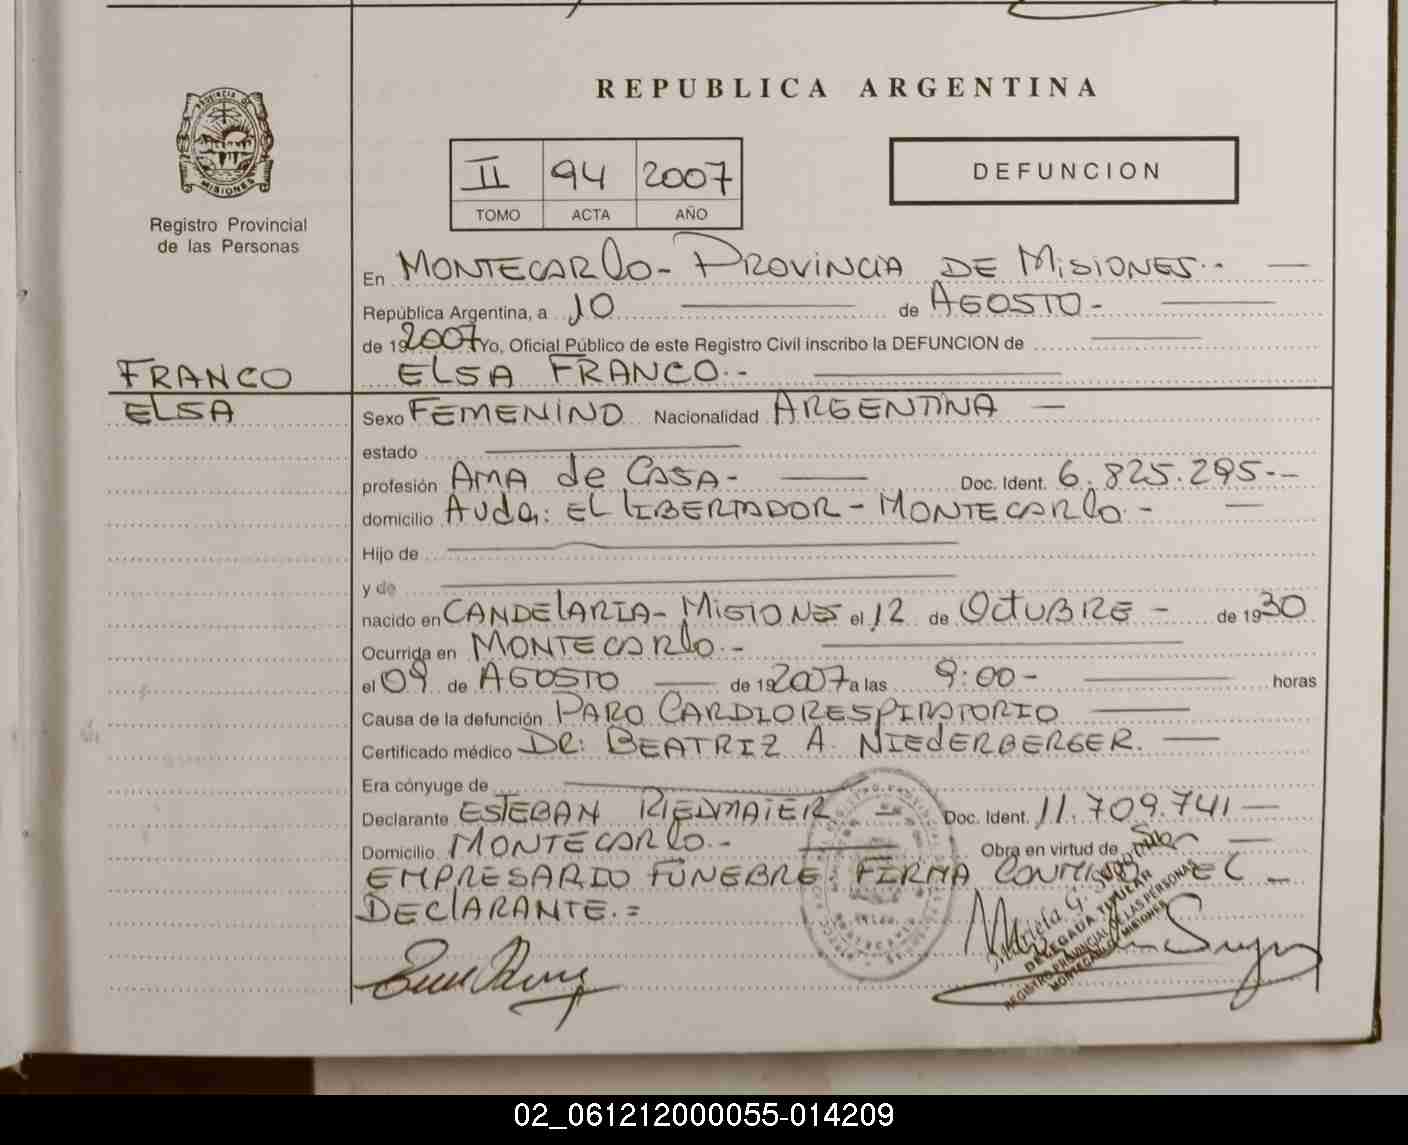 REPUBLICA ARGENTINA
PROVINCIA DE
MISIONES
Registro Provincial
de las Personas
II 94 2007
TOMO ACTA AÑO
DEFUNCION
En MONTECARLO- PROVINCIA DE MISIONES.-
República Argentina, a 10 de AGOSTO-
de 192007 Yo, Oficial Público de este Registro Civil inscribo la DEFUNCION de
FRANCO
ELSA
ELSA FRANCO.-
Sexo FEMENINO Nacionalidad ARGENTINA
estado
profesión AMA de CASA- Doc. Ident. 6.825.295.-
domicilio Avda: EL LIBERTADOR - MONTECARLO.-
Hijo de
y de
nacido en CANDELARIA- MISIONES el 12 de OCTUBRE - de 1930
Ocurrida en MONTECARLO.-
el 09 de AGOSTO de 192007 a las 9:00- horas
Causa de la defunción PARO CARDIORESPIRATORIO
Certificado médico DR: BEATRIZ A. NIEDERBERGER.
Era cónyuge de
Declarante ESTEBAN RIEDMAIER Doc. Ident. 11.709.741
Domicilio MONTECARLO.- Obra en virtud de Ser
EMPRESARIO FUNEBRE FIRMA CONMIGO EL
DECLARANTE.=
Mariela G.
DELEGADA TITULAR
REGISTRO PROVINCIAL DE LAS PERSONAS
MONTECARLO MISIONES
02_061212000055-014209